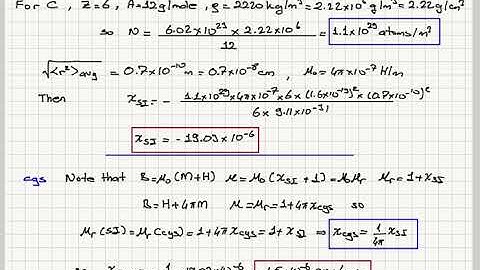 For C , Z=6 , A=12g/mole , ρ = 2220 kg/m³ = 2.22×10⁶ g/m³ = 2.22 g/cm³
so N = 6.02×10²³ × 2.22×10⁶ / 12 = 1.1×10²⁹ atoms/m³
√<r²>avg = 0.7×10⁻¹⁰ m = 0.7×10⁻⁸ cm , μ₀ = 4π×10⁻⁷ H/m
Then χSI = - 1.1×10²⁹ × 4π×10⁻⁷ × 6 × (1.6×10⁻¹⁹)² × (0.7×10⁻¹⁰)² / 6 × 9.11×10⁻³¹
χSI = - 19.03 × 10⁻⁶
cgs Note that B=μ₀(M+H) μ=μ₀(χSI+1)=μ₀μr μr=1+χSI
B=H+4πM μ=μr=1+4πχcgs so
μr(SI)=μr(cgs)=1+4πχcgs=1+χSI ⇒ χcgs = 1/4π χSI